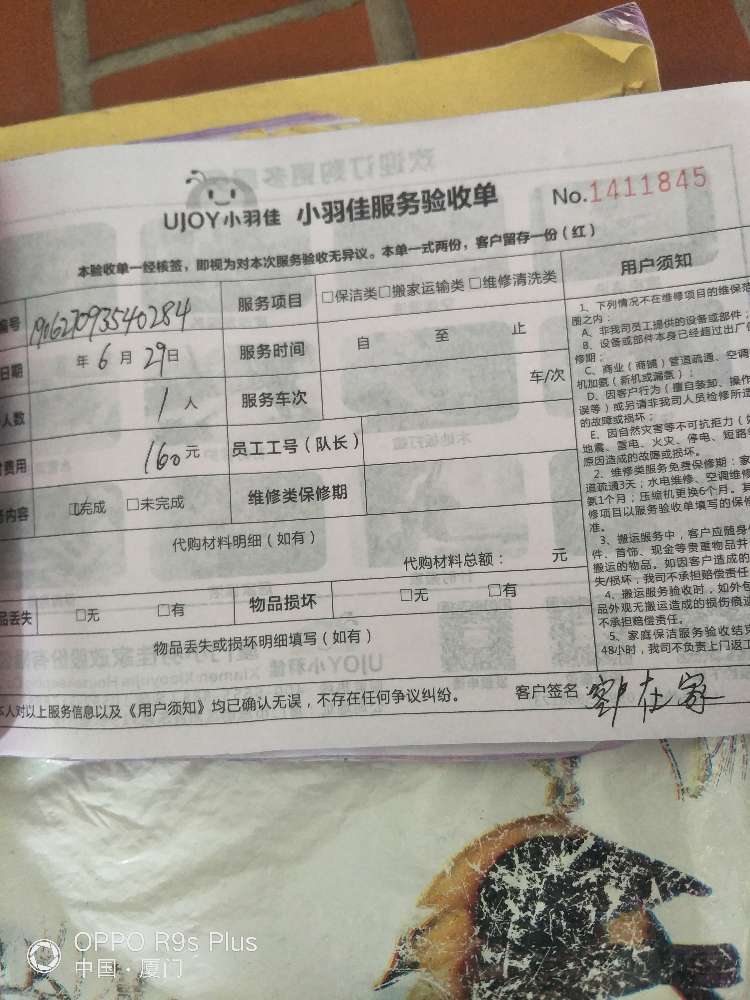 UJOY小羽佳 小羽佳服务验收单 No.1411845
本验收单一经核签，即视为对本次服务验收无异议。本单一式两份，客户留存一份（红）
编号 190627093540284 服务项目 □保洁类□搬家运输类□维修清洗类
日期 年6月29日 服务时间 自 至 止
人数 1人 服务车次 车/次
费用 160元 员工工号（队长）
内容 □完成 □未完成 维修类保修期
代购材料明细（如有）
代购材料总额： 元
品丢失 □无 □有 物品损坏 □无 □有
物品丢失或损坏明细填写（如有）
本人对以上服务信息以及《用户须知》均已确认无误，不存在任何争议纠纷。 客户签名
用户须知
1、下列情况不在维修项目的维保范
围之内：
A、非我司员工提供的设备或部件；
B、设备或部件本身已经超过出厂
修期；
C、商业（商铺）管道疏通、空调
机加氨（新机或漏氨）；
D、因客户行为（擅自装卸、操作
误等）或另请非我司人员检修所造
的故障或损坏；
E、因自然灾害等不可抗拒力（如
地震、雷电、火灾、停电、短路
原因造成的故障或损坏。
2、维修类服务免费保修期：家
道疏通3天；水电维修、空调维修
氨1个月；压缩机更换6个月。其
修项目以服务验收单填写的保修
准。
3、搬运服务中，客户应随身
件、首饰、现金等贵重物品并
搬运的物品。如因客户造成的
失/损坏，我司不承担赔偿责任
4、搬运服务验收时，如外包
品外观无搬运造成的损伤痕迹
不承担赔偿责任。
5、家庭保洁服务验收结束
48小时，我司不负责上门返工
OPPO R9s Plus
中国·厦门